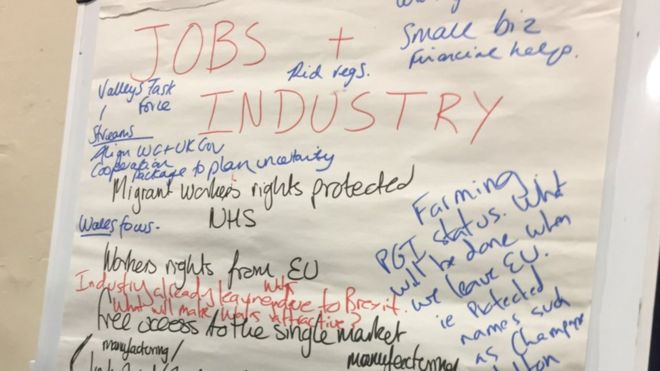 JOBS +
Small biz
Financial help.
Rid regs.
INDUSTRY
Valleys Task
Force
Streams
Align WG + UK Gov
Cooperation
package to plan uncertainty
Migrant workers rights protected
NHS
Wales focus.
Workers rights from EU
Industry already leaving due to Brexit.
What will make Wales attractive?
free access to the single market
manufacturing /
manufacturing
Farming
PGI status. What
will be done when
we leave EU.
ie Protected
names such
as Champagne